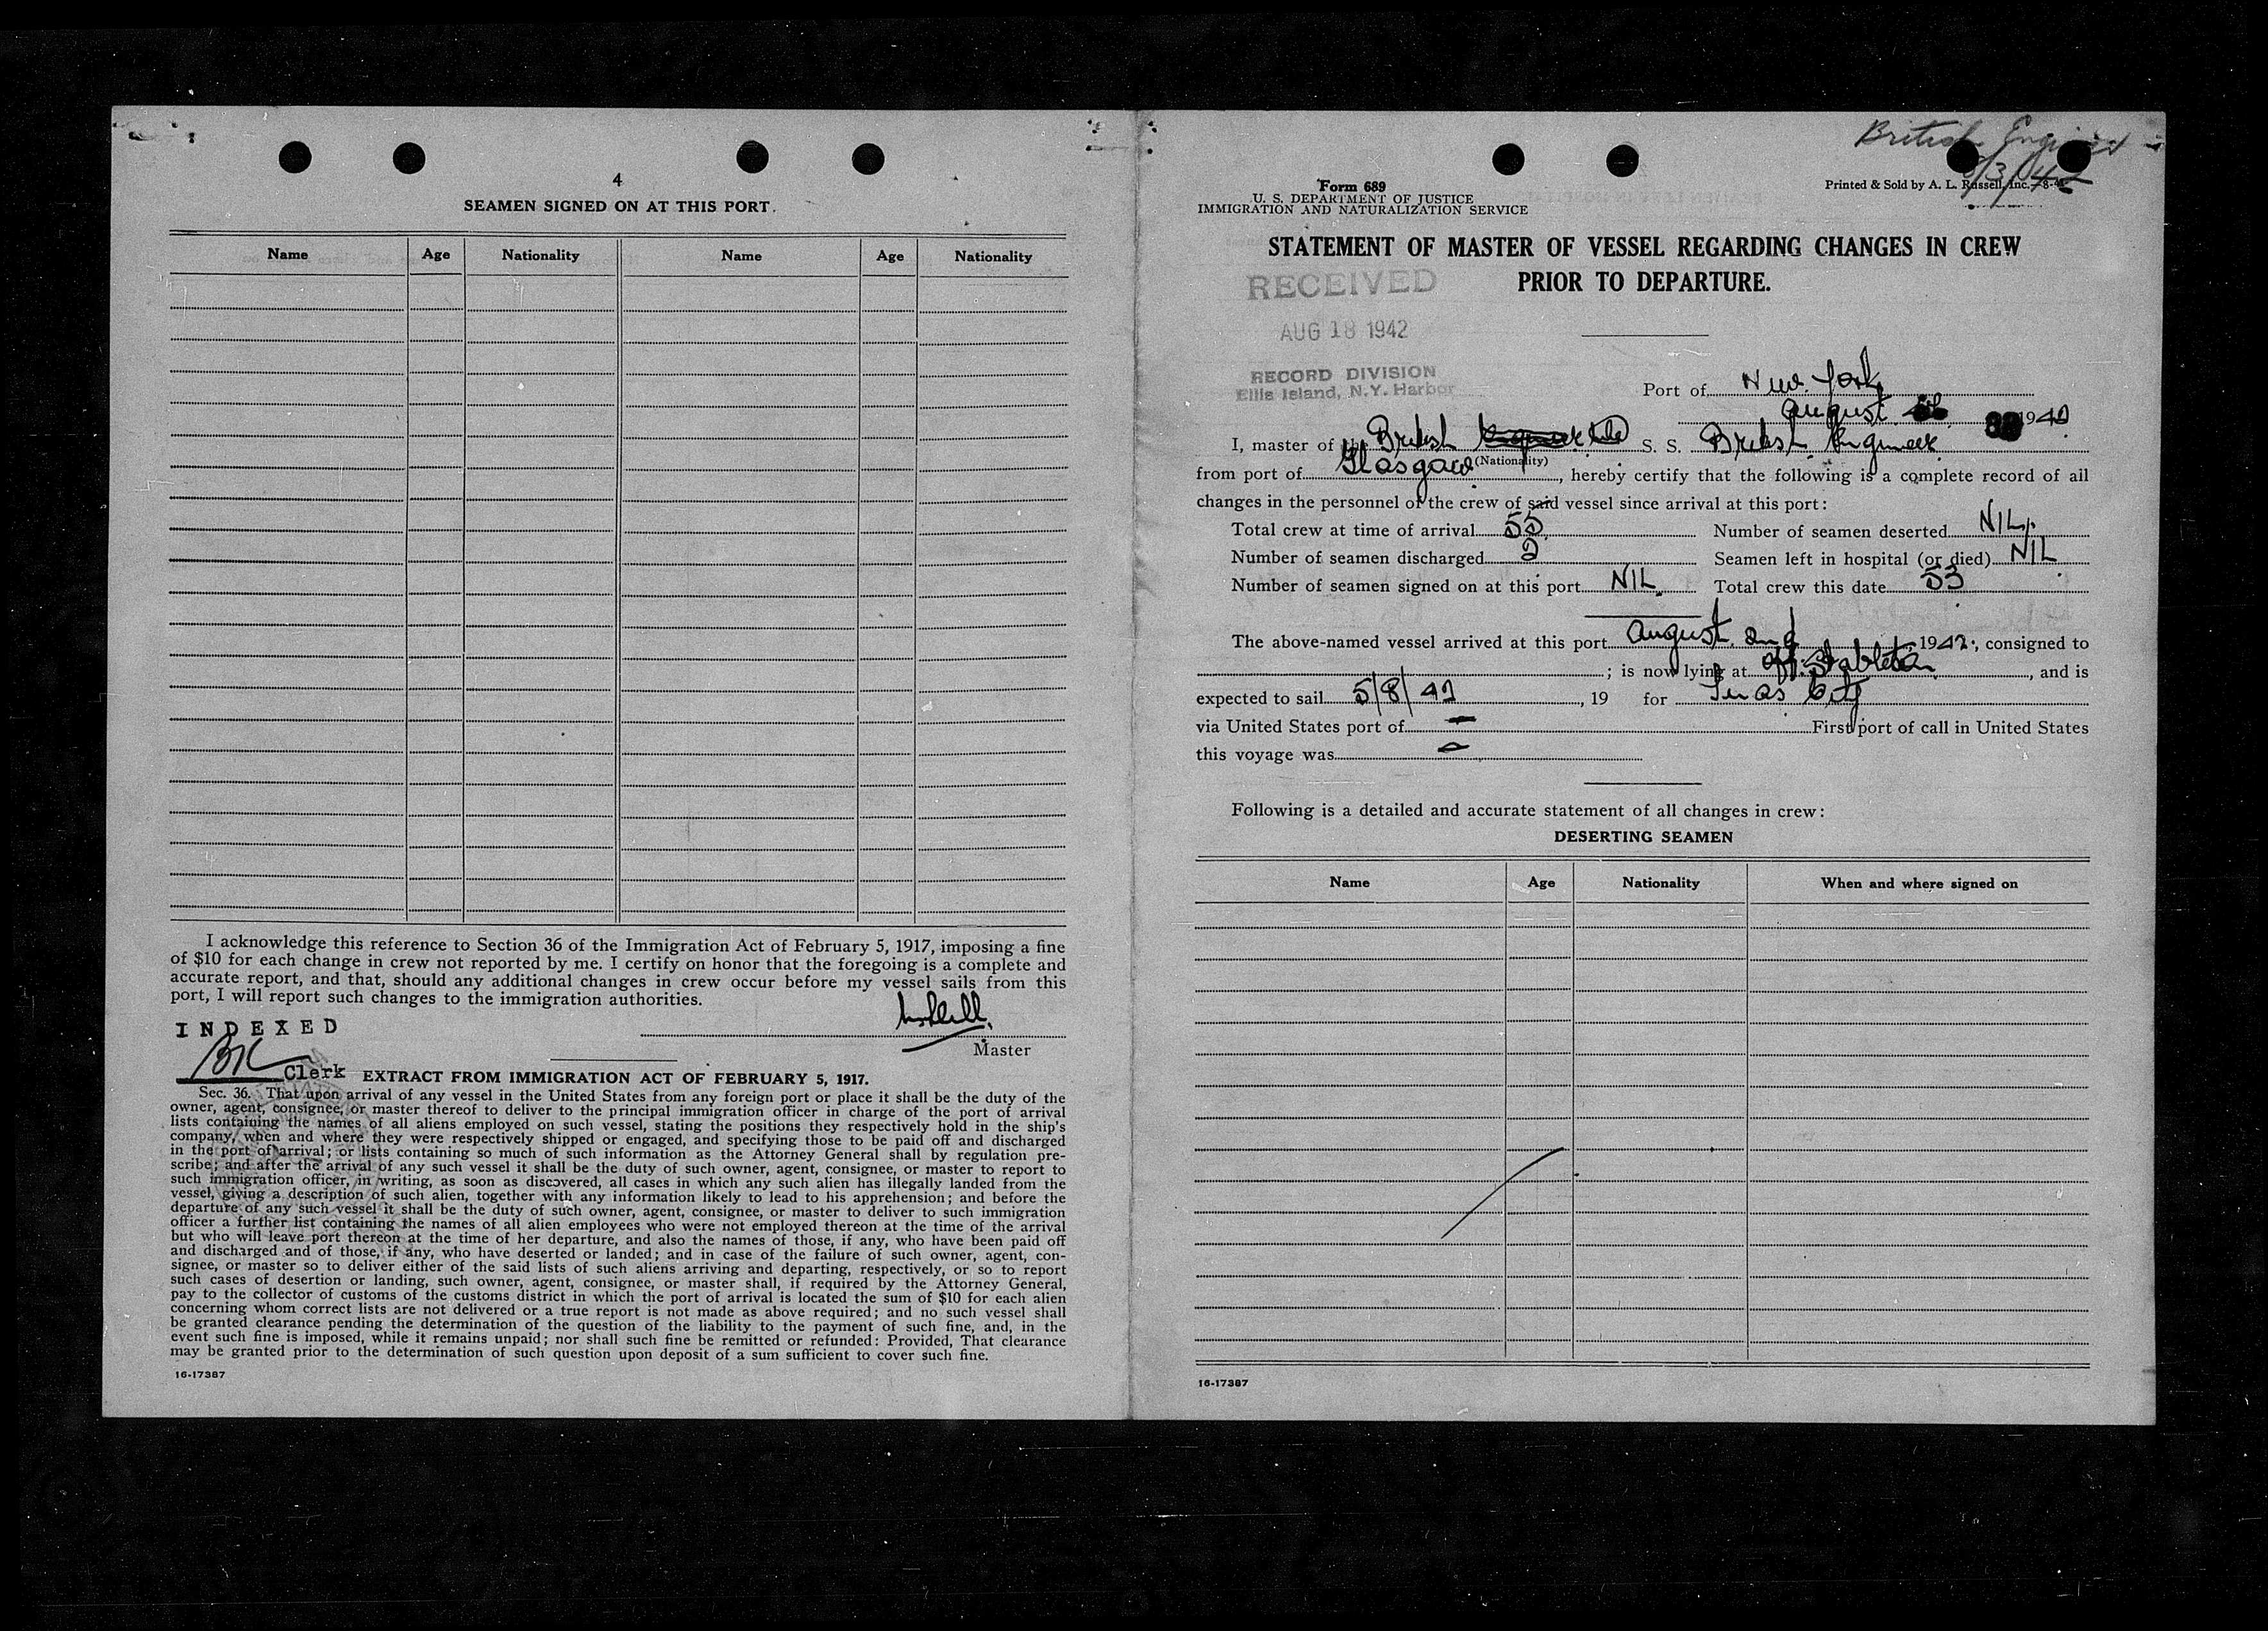 4
SEAMEN SIGNED ON AT THIS PORT.
Name Age Nationality Name Age Nationality
I acknowledge this reference to Section 36 of the Immigration Act of February 5, 1917, imposing a fine
of $10 for each change in crew not reported by me. I certify on honor that the foregoing is a complete and
accurate report, and that, should any additional changes in crew occur before my vessel sails from this
port, I will report such changes to the immigration authorities.
INDEXED
Master
Clerk
EXTRACT FROM IMMIGRATION ACT OF FEBRUARY 5, 1917.
Sec. 36. That upon arrival of any vessel in the United States from any foreign port or place it shall be the duty of the
owner, agent, consignee, or master thereof to deliver to the principal immigration officer in charge of the port of arrival
lists containing the names of all aliens employed on such vessel, stating the positions they respectively hold in the ship's
company, when and where they were respectively shipped or engaged, and specifying those to be paid off and discharged
in the port of arrival; or lists containing so much of such information as the Attorney General shall by regulation pre-
scribe; and after the arrival of any such vessel it shall be the duty of such owner, agent, consignee, or master to report to
such immigration officer, in writing, as soon as discovered, all cases in which any such alien has illegally landed from the
vessel, giving a description of such alien, together with any information likely to lead to his apprehension; and before the
departure of any such vessel it shall be the duty of such owner, agent, consignee, or master to deliver to such immigration
officer a further list containing the names of all alien employees who were not employed thereon at the time of the arrival
but who will leave port thereon at the time of her departure, and also the names of those, if any, who have been paid off
and discharged and of those, if any, who have deserted or landed; and in case of the failure of such owner, agent, con-
signee, or master so to deliver either of the said lists of such aliens arriving and departing, respectively, or so to report
such cases of desertion or landing, such owner, agent, consignee, or master shall, if required by the Attorney General,
pay to the collector of customs of the customs district in which the port of arrival is located the sum of $10 for each alien
concerning whom correct lists are not delivered or a true report is not made as above required; and no such vessel shall
be granted clearance pending the determination of the question of the liability to the payment of such fine, and, in the
event such fine is imposed, while it remains unpaid; nor shall such fine be remitted or refunded: Provided, That clearance
may be granted prior to the determination of such question upon deposit of a sum sufficient to cover such fine.
16-17387
British Engineer
Form 689
U. S. DEPARTMENT OF JUSTICE
IMMIGRATION AND NATURALIZATION SERVICE
Printed & Sold by A. L. Russell, Inc.
STATEMENT OF MASTER OF VESSEL REGARDING CHANGES IN CREW
PRIOR TO DEPARTURE.
RECEIVED
AUG 18 1942
RECORD DIVISION
Ellis Island, N.Y. Harbor
Port of New York
August 1942
I, master of the British S. S. British Engineer
(Nationality)
from port of Glasgow, hereby certify that the following is a complete record of all
changes in the personnel of the crew of said vessel since arrival at this port:
Total crew at time of arrival 55 Number of seamen deserted NIL
Number of seamen discharged 2 Seamen left in hospital (or died) NIL
Number of seamen signed on at this port NIL Total crew this date 53
The above-named vessel arrived at this port August 2nd 1942, consigned to
; is now lying at off Stapleton, and is
expected to sail 5/8/42, 19 for Texas City
via United States port of - First port of call in United States
this voyage was -
Following is a detailed and accurate statement of all changes in crew:
DESERTING SEAMEN
Name Age Nationality When and where signed on
16-17387